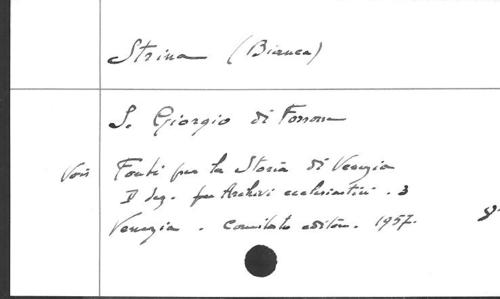 Strina (Bianca)
S. Giorgio di Fossone
Voir Fonti per la Storia di Venezia
II Sez. per Archivi ecclesiastici . 3
Venezia . Comitato editore. 1957.